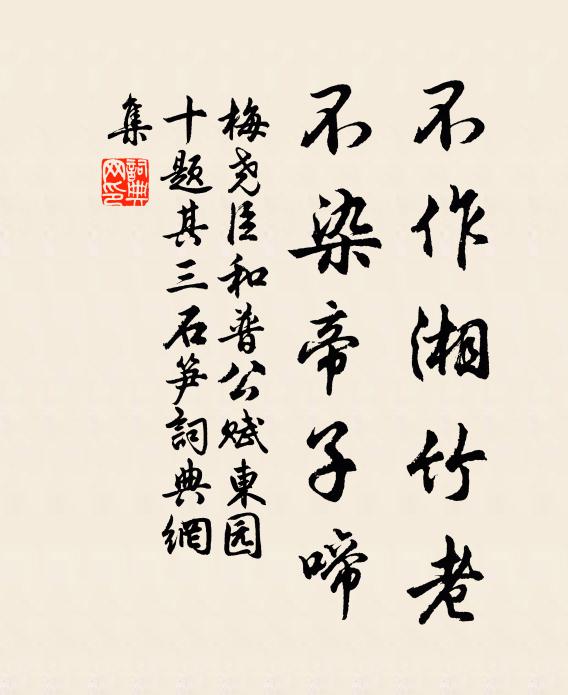 不作湘竹老
不染帝子啼
梅尧臣和普公赋東园
十题其三石笋詞典網
集
詞典網印